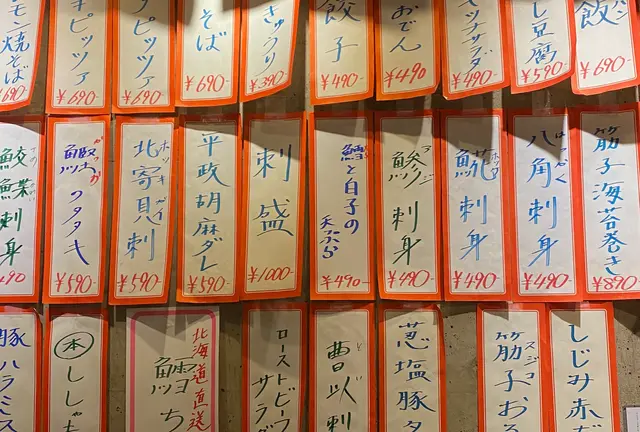 モン焼そば
¥690-
キピッツァ
¥690-
タピッツァ
¥690-
そば
¥690-
きゅうり
¥390-
餃子
¥490-
おでん
¥490
¥490-
し豆腐
¥590-
飯
¥690-
刺身
490
鰹のタタキ
かつお
¥590-
北寄貝刺
¥590-
平政胡麻ダレ
¥590-
刺盛
¥1000-
鱈と白子の
天ぷら
¥490-
鯵刺身
アジ
¥490-
刺身
ホッケ
¥490-
八角刺身
はっかく
¥490-
筋子海苔巻き
¥890-
豚ハラミス
本ししゃも
北海道直送
ち
ローストビーフ
サラダ
曹以刺
葱塩豚タ
筋子おろ
スジコ
しじみ赤だ